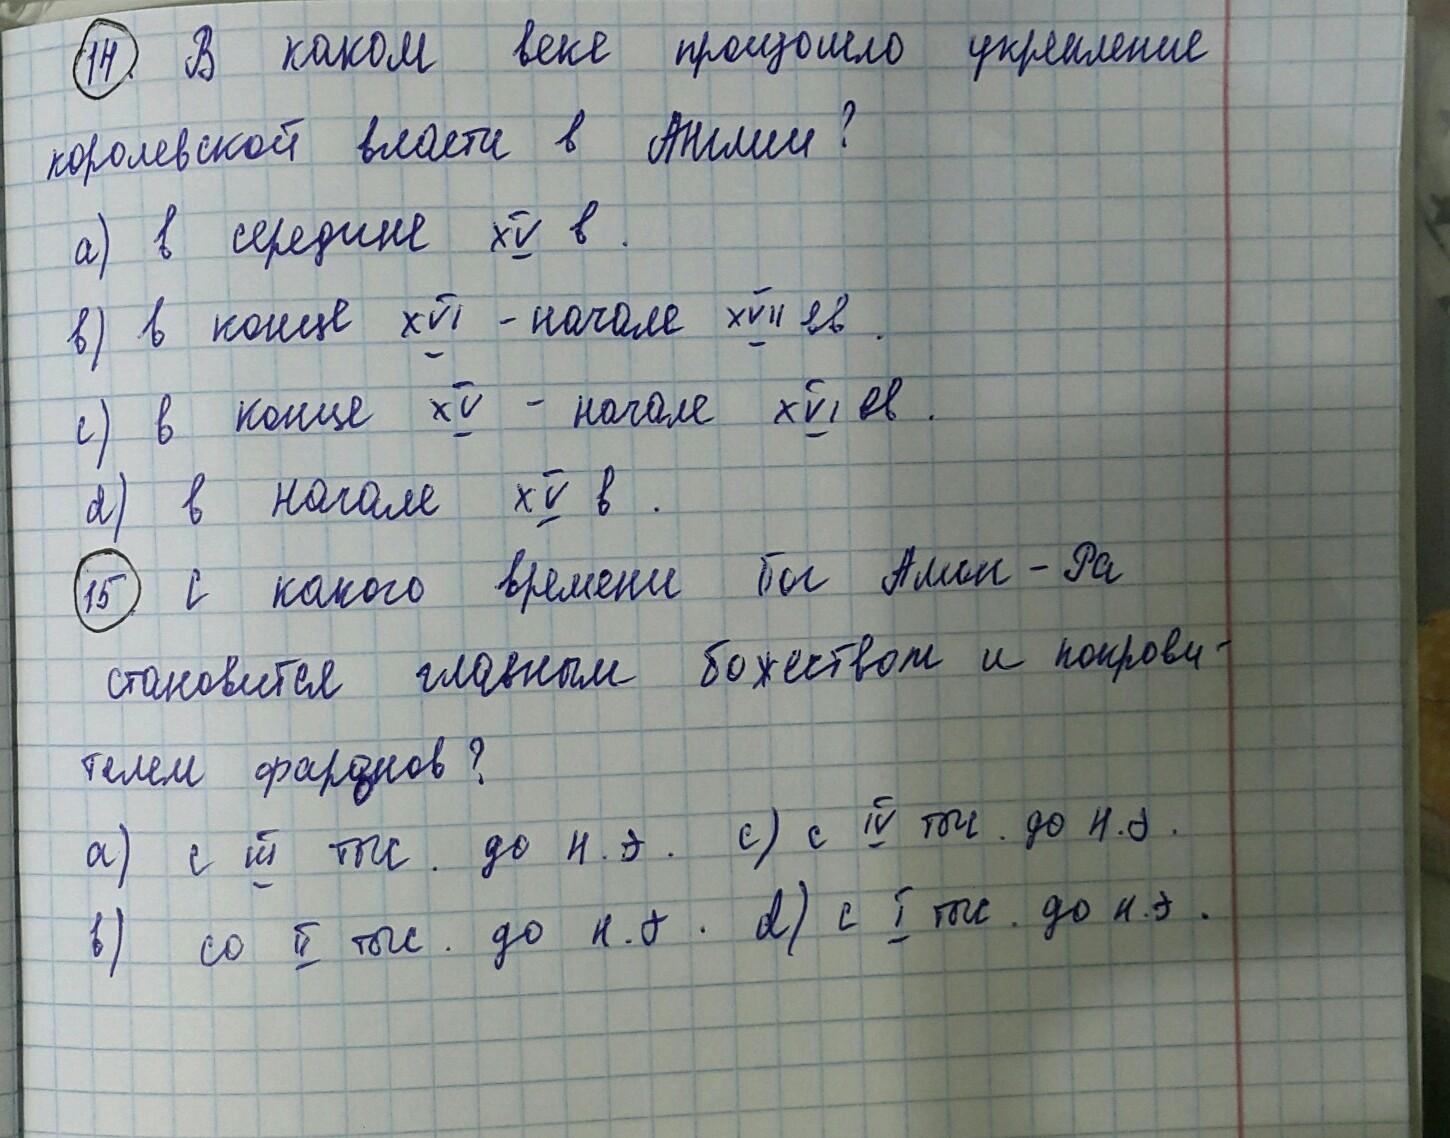 14. В каком веке произошло укрепление
королевской власти в Англии?
а) в середине XV в.
в) в конце XVI - начале XVII вв.
с) в конце XV - начале XVI вв.
d) в начале XV в.
15 С какого времени Бог Амон - Ра
становится главным божеством и покрови-
телем фараонов?
а) с III тыс. до н.э. с) с IV тыс. до н.э.
в) со II тыс. до н.э. d) с I тыс. до н.э.